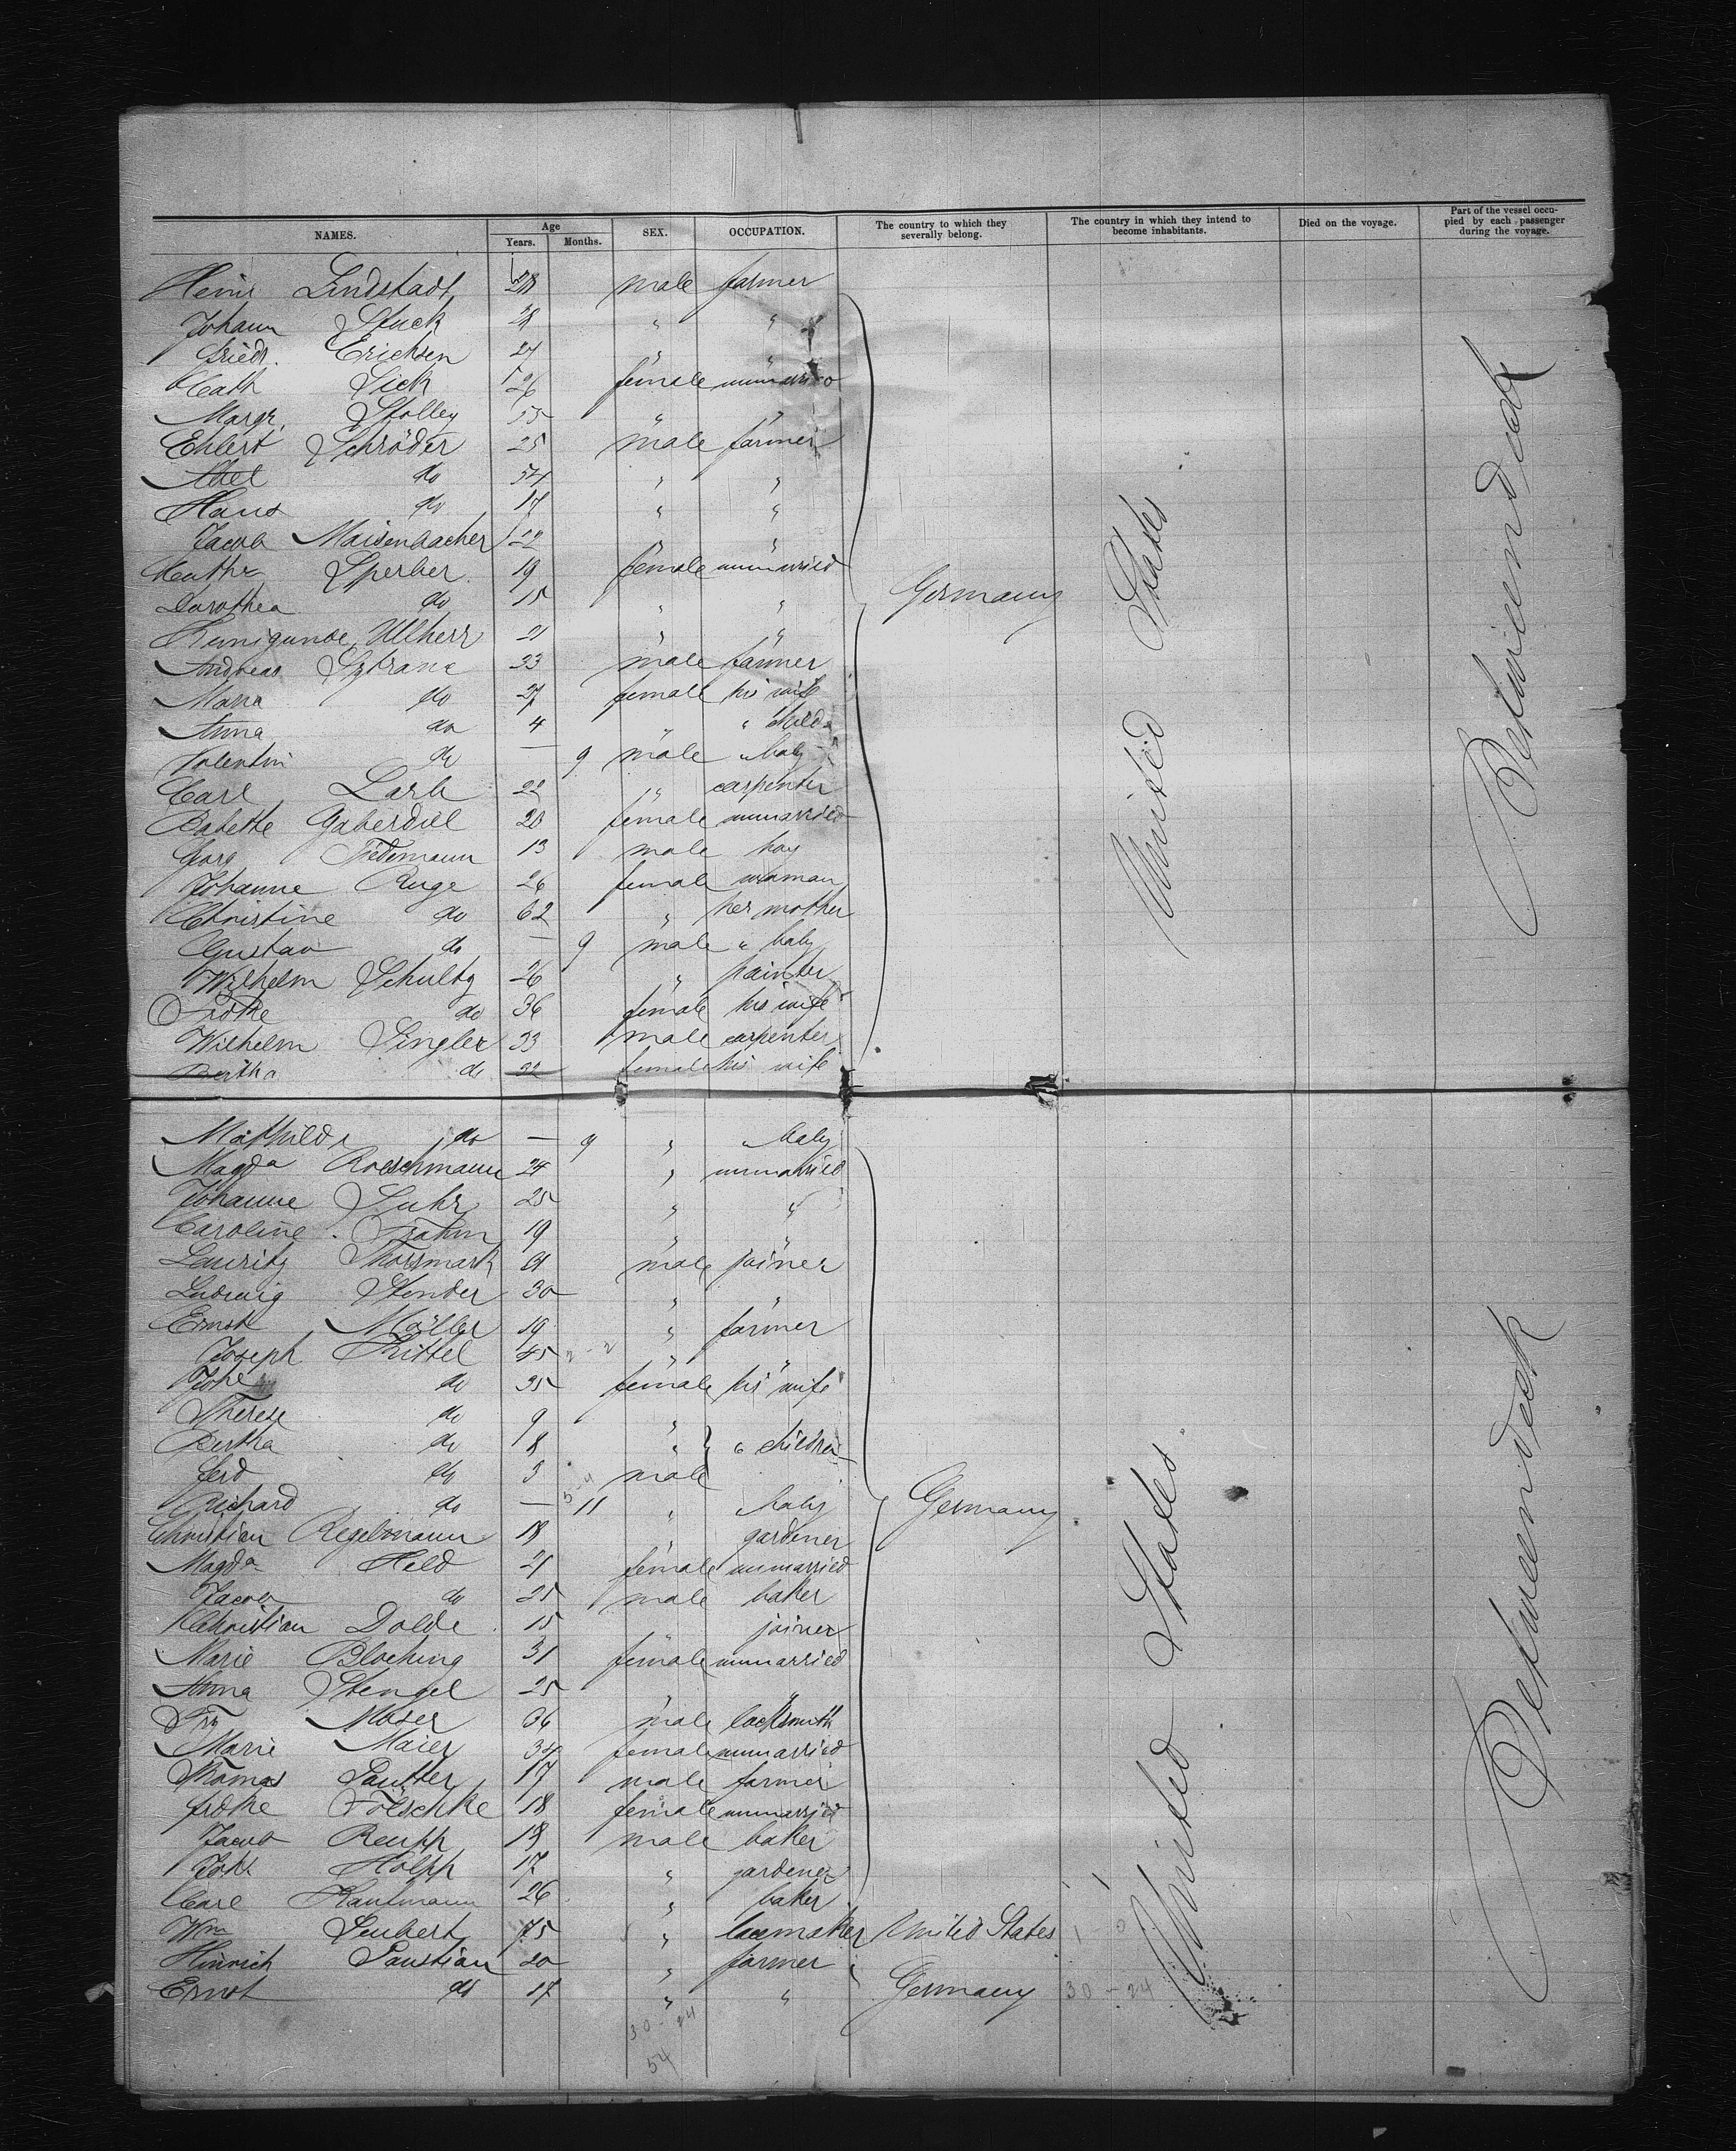 NAMES. Age Years. Months. SEX. OCCUPATION. The country to which they severally belong. The country in which they intend to become inhabitants. Died on the voyage. Part of the vessel occupied by each passenger during the voyage.
Heinr Lindstadt 28 male farmer
Johann Stuck 28 " "
Friedr. Erichsen 27 " "
Cath Sick 26 female unmarried
Margr. Stolley 55 " "
Ehlert Schröder 25 male farmer
Abel do 54 " "
Hans do 17 " "
Jacob Maisenbacher 22 " "
Cathr Sperber 19 female unmarried
Dorothea do 15 " "
Germany
United States
Betweendeck
Kunigunde Ullherr 21 " "
Andreas 33 male farmer
Maria do 27 female his wife
Anna do 4 " " child
Valentin do — 9 male " baby
Carl Larb 22 " carpenter
Babette Gaberdiel 20 female unmarried
Georg Tiedemann 13 male boy
Johanne Ruge 26 female woman
Christine do 62 " her mother
Gustav do — 9 male " baby
Wilhelm Schultz 26 " painter
Fridke do 36 female his wife
Wilhelm Singler 33 male carpenter
Bertha do 32 female his wife
Mathilde do — 9 " " baby
Magda Roeschmann 24 " unmarried
Johanne Suhr 25 " "
Caroline Frahm 19 " "
Lauritz Thorsmark male joiner
Ludwig Stender 30 " "
Ernst Möller 19 " farmer
Joseph Kittel 45 2-2 " "
Joh do 35 female his wife
Therese do 9 "
Bertha do 8 " " children
Ferd do 3 male
Richard do — 11 " baby
Germany
United States
Betweendeck
Christian Regelmann 18 gardener
Magda Held 21 female unmarried
Jacob do 25 male baker
Christian Dolde 15 joiner
Marie Bloching 31 female unmarried
Anna Stengel 25 " "
Frz Moser 36 male locksmith
Marie Maier 34 female unmarried
Thomas Sautter 17 male farmer
Fridke Fölschke 18 female unmarried
Jacob Rupp 18 male baker
Johs Hölpp 17 " gardener
Carl Kaufmann 26 " baker
Wm Seubert 75 " lacemaker United States
Hinrich Paustian 20 " farmer
Ernst do 17 " " Germany 30-24
30-24
54